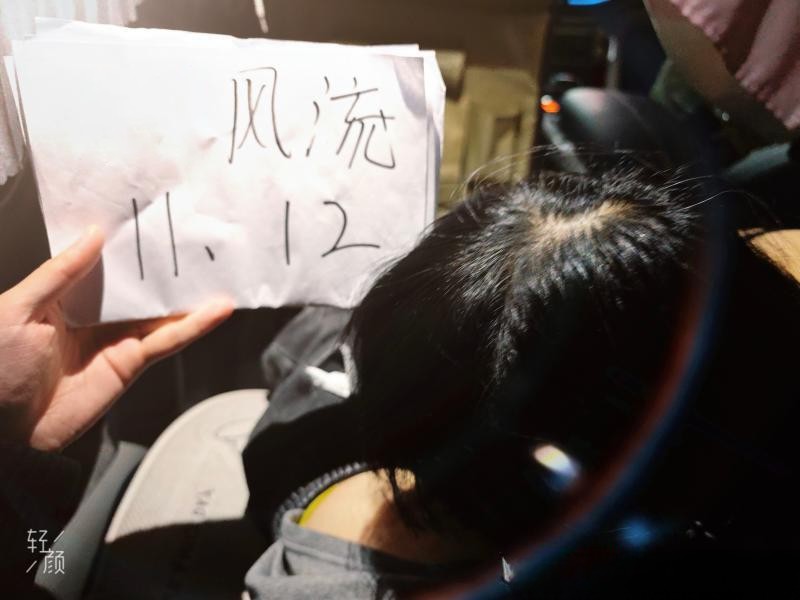 风流
11、12
轻
颜